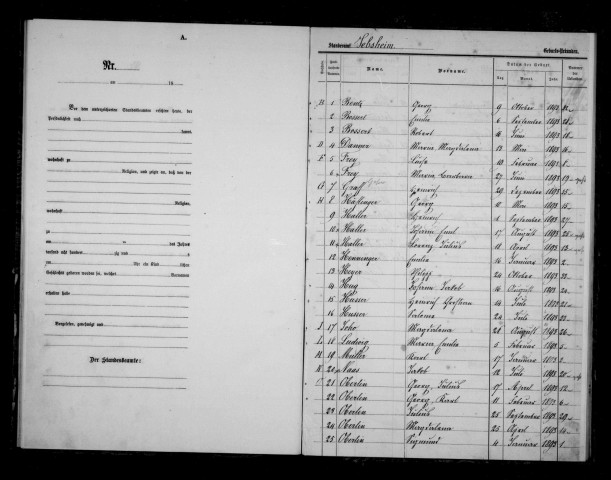 A.
Nr.
Vor dem unterzeichneten Standesbeamten erschien heute, der
Persönlichkeit nach
kannt,
wohnhaft zu
Religion, und zeigte an, daß von der
Religion,
wohnhaft
zu
zu
am ten des Jahres
tausend acht hundert zig und
Mittags um Uhr ein Kind
Geschlechts geboren worden sei, welches Vornamen
erhalten habe
Vorgelesen, genehmigt und
Der Standesbeamte:
Standesamt Jebsheim Geburts-Urkunden.
Name. Vorname. Datum der Geburt.
Tag Monat Jahr
B 1 Bentz Georg 9 Oktober 1893
2 Bossert Emilie 6 September 1893
3 Bossert Robert 16 Juni 1893 18
D 4 Danger Maria Magdalena 13 Mai 1893 16
F 5 Frey Luise 10 Februar 1893 8
6 Frey Maria Carolina 27 Juni 1893 19
G 7 Graff Heinrich 29 Dezember 1893 35
H 8 Häflinger Georg 10 Mai 1893 15
9 Haller Heinrich 1 September 1893 27
10 Haller Johann Emil 17 August 1893 25
11 Haller Georg Julius 18 April 1893 13
12 Henninger Emilie 16 Januar 1893 2
13 Heyer Philipp 24 Oktober 1893 32
14 Hug Johann Jakob 16 August 1893 24
15 Husser Heinrich 14 Juli 1893 21
16 Husser Salome 24 Juli 1893 22
J 17 Magdalena 28 August 1893 26
L 18 Ludwig Maria Emilie 5 Februar 1893 5
M 19 Müller Karl 17 Januar 1893 3
N 20 Naas Jakob 12 Juli 1893 20
O 21 Oberlin Georg Julius 17 April 1893 12
22 Oberlin Georg Karl 11 Februar 1893 6
23 Oberlin Julius 25 September 1893 29
24 Oberlin Magdalena 23 April 1893 14
25 Oberlin Sigmund 4 Januar 1893 1